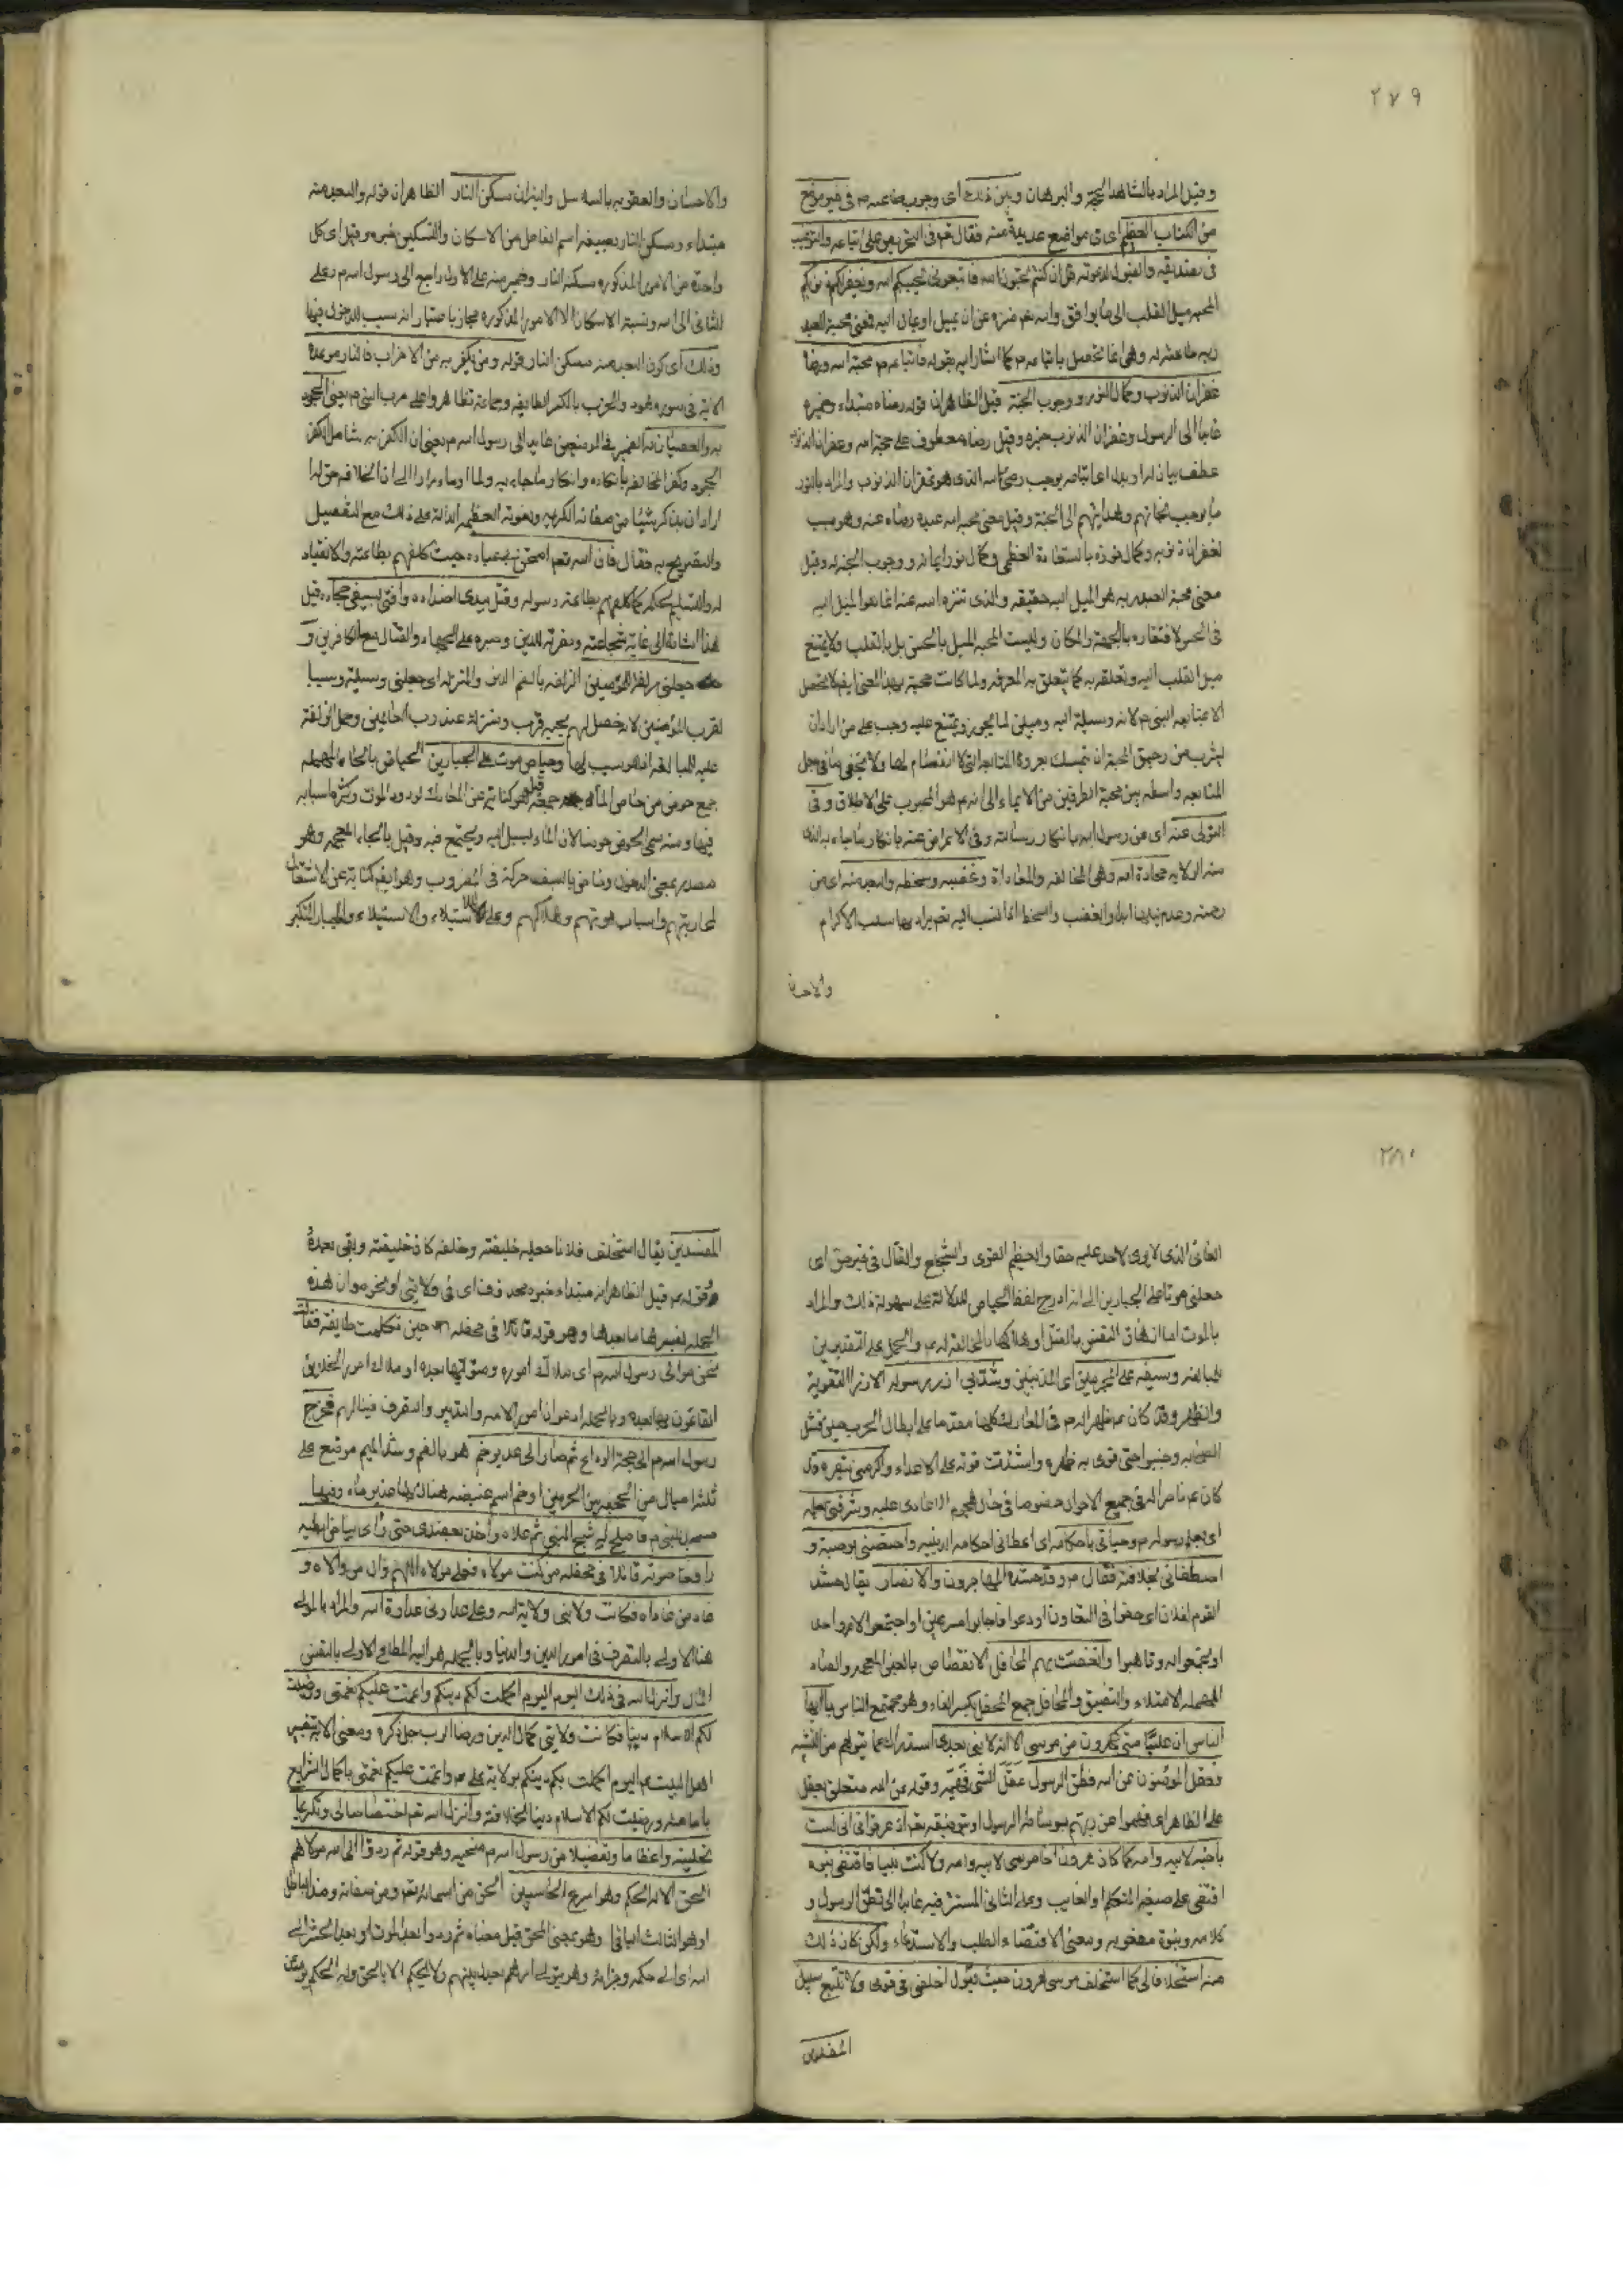 ٢٧٩
وقيل المراد بالشاهد الحجة والبرهان وبين ذلك اى وجوب طاعته م فى غير موضع
من الكتاب العظيم اى فى مواضع عديدة منه فقال تعم فى التحريص على اتباعه والترغيب
فى تصديقه والقبول لدعوته قل ان كنتم تحبون الله فاتبعونى يحببكم الله ويغفر لكم ذنوبكم
المحبه ميل القلب الى ما يوافق والله تعم منزه عن ان يميل او يمال اليه فمعنى محبة العبد
ربه طاعته له وهى انما تحصل باتباعه م كما اشار اليه بقوله فاتباعه م محبة الله ورضاه
غفران الذنوب وكمال النور ووجوب الجنة قيل الظاهر ان قوله رضاه مبتداء وضميره
عايد الى الرسول وغفران الذنوب خبره وقيل رضاه معطوف على محبة الله وغفران الذنوب
عطف بيان له او بدل اى اتباعه يوجب رضى الله الذى هو غفران الذنوب والمراد بالنور
ما يوجب نجاتهم وهدايتهم الى الجنة وقيل معنى محبة الله عبده رضاه عنه وهو سبب
لغفران ذنوبه وكمال فوزه بالسعادة العظمى وكمال نور ايمانه ووجوب الجنة له وقيل
معنى محبة العبد ربه هو الميل اليه حقيقه والذى تنزه الله عنه انما هو الميل اليه
فى الحس لافتقاره بالجهة والمكان وليست المحبه الميل بالحس بل بالقلب ولا يمتنع
ميل القلب اليه وتعلقه به كما يتعلق به المعرفه ولما كانت محبته بهذا المعنى ايضا لا تحصل
الا بمتابعه النبى م لانه وسيلة اليه ومبين لما يجوز ويمتنع عليه وجب على من اراد ان
يشرب من رحيق المحبة ان يتمسك بعروة المتابعه التى لا انفصام لها ولا يخفى ما فى جعل
المتابعه واسطه بين محبة الطرفين من الايماء الى انه م هو المحبوب على الاطلاق وفى
التولى عنه اى عن رسول الله بانكار رسالته وفى الاعراض عنه بانكار ما جاء به
منه الولايه محادة الله وهى المخالفه والمعاداة وغضبه وسخطه والبعد منه اى من
رحمته والغضب والسخط اذا نسب اليه تعم يراد بها سلب الاكرام
والاحسان
والاحسان والعقوبه بالسلاسل والنيران مسكن النار الظاهر ان قوله والبعد منه
مبتداء ومسكن النار بصيغه اسم الفاعل من الاسكان والتسكين خبره وقيل اى كل
واحدة من الامور المذكوره مسكنه النار وضمير منه على الاول راجع الى رسول الله م وعلى
الثانى الى الله ونسبة الاسكان الى الامور المذكوره مجاز باعتبار انه سبب للدخول فيها
وذلك اى كون البعد منه مسكن النار قوله ومن يكفر به من الاحزاب فالنار موعده
الاية فى سوره هود والحزب بالكسر الطايفه وجماعة تظاهروا على حرب النبى م يعنى الجحود
به والعصيان له الضمير فى الموضعين عايد الى رسول الله م يعنى ان الكفر به شامل لكفر
الجحود وكفر المخالفه بانكاره وانكار ما جاء به ولما اوماء مرارا الى ان الخلافه حق له
اراد ان يذكر شيئا من صفاته الكريمه ونعوته العظيمه الدالة على ذلك مع التفصيل
والتصريح به فقال فان الله تعم امتحن بى عباده حيث كلفهم بطاعته والانقياد
له والتسليم لحكمه كما كلفهم بطاعة رسوله وقتل بيدى اضداده وافنى بسيفى جحاده قيل
هذا اشارة الى غاية شجاعته ونصرته للدين وصبره على الجهاد والقتال مع الكافرين و
جعلنى زلفة للمؤمنين الزلفه بالضم القرب والمنزله اى جعلنى وسيلة وسببا
لقرب المؤمنين لانه حصل لهم بحبه قرب ومنزله عند رب العالمين وحمل الزلفة
عليه للمبالغه اذ هو سبب لها وحياض موت على الجبارين الحياض بالحاء المهمله
جمع حوض من حاض الماء جمعه قيل هو كناية عن المعارك لورود الموت وكثرة اسبابه
فيها ومنه سمى الحوض حوضا لان الماء يسيل اليه ويجتمع فيه وقيل بالخاء المعجمه وهو
مصدر بمعنى الدخول وخاض بالسيف حركه فى المضروب وهو ايضا كناية عن الاشتغال
لمحاربتهم واسباب موتهم وهلاكهم وعلى للاستيلاء والاستعلاء والجبار المتكبر
٢٨٠
العاتى الذى لا يرى لاحد عليه حقا والعظيم القوى والشجاع والقتال فى غير حق اى
جعلنى موتا على الجبارين الى انه ادرج لفظ الحياض للدلالة على سهولة ذلك والمراد
بالموت اما ازهاق النفس بالقتل او هلاكها بالمخالفة له م والحمل على التقديرين
للمبالغه وسيفه على المجرمين اى المذنبين وشد بى ازر رسوله الازر التقوية
والظهر وقد كان م ظهرا له م فى المعارك كلها مقدما على ابطال الحرب حين فشل
الصحابه وجبنوا حتى قوى به ظهره واشتدت قوته على الاعداء واكرمنى بنصره وقد
كان م ناصرا له فى جميع الاحوال خصوصا فى حال هجوم الاعادى عليه وشرفنى بعلمه
اى بعلم رسوله م وحبانى باحكامه اى اعطانى احكامه الدينيه واختصنى بوصيته و
اصطفانى بخلافته فقال م وقد حشده المهاجرون والانصار يقال حشد
القوم لفلان اى خفوا فى التعاون او دعوا فاجابوا مسرعين او اجتمعوا لامر واحد
او تجمعوا له وتاهبوا وانغصت بهم المحافل الانغصاص بالغين المعجمه والصاد
المهمله الامتلاء والتضيق والمحافل جمع المحفل بكسر الفاء وهو مجتمع الناس يا ايها
الناس ان عليا منى كهرون من موسى الا انه لا نبى بعدى استدراك عما يتوهم من التشبيه
فعقل المؤمنون عن الله فطق الرسول عقل الشى فهمه وقوله عن الله متعلق بعقل
على الظاهر اى فهموا عن ربهم بوساطة الرسول او بتوفيقه تعم اذ عرفونى انى لست
باخيه لابيه وامه كما كان هرون اخا موسى لابيه وامه ولا كنت نبيا فاقتضى نبوه
اقتضى على صيغة المتكلم او الغايب وعلى الثانى المستتر فيه عايد الى نطق الرسول و
كلامه ونبوة مفعوله ومعنى الاقتضاء الطلب والاستدعاء ولكن كان ذلك
منه استخلافا لى كما استخلف موسى هرون حيث يقول اخلفنى فى قومى ولا تتبع سبيل
المفسدين
المفسدين يقال استخلف فلانا جعله خليفته وخلفه كان خليفته وبقى بعده
وقوله م قيل الظاهر انه مبتداء خبره محذوف اى فى ولايتى او نحوه وان هذه
الجمله يفسرها ما بعدها وهو قوله قائلا فى محفله حين تكلمت طايفة فقالت
نحن موالى رسول الله م اى ملاك اموره ومتوليها بعده او ملاك امور الخلايق
القائمون بها بعده وبالجمله ادعوا ان امور الامه والتدبير والتصرف فينا لهم فخرج
رسول الله م الى حجة الوداع ثم صار الى غدير خم هو بالضم وشد الميم موضع على
ثلثة اميال من الجحفه بين الحرمين او خم اسم غيضه هناك بها غدير ماء وفيها
مسجد للنبى م فاصلح له شبه المنبر ثم علاه واخذ بعضدى حتى راى بياض ابطيه
رافعا صوته قائلا فى محفله من كنت مولاه فعلى مولاه اللهم وال من والاه و
عاد من عاداه فكانت ولايتى ولاية الله وعلى عداوتى عداوة الله والمراد بالمولى
هنا الاولى بالتصرف فى امور الدين والدنيا وبالجمله هو السيد المطاع الاولى بالنفس
المال وانزل الله فى ذلك اليوم اليوم اكملت لكم دينكم واتممت عليكم نعمتى ورضيت
لكم الاسلام دينا فكانت ولايتى كمال الدين ورضا الرب جل ذكره ومعنى الاية بتفسير
اهل البيت م اليوم اكملت لكم دينكم بولاية على م واتممت عليكم نعمتى باكمال الشرايع
بامامته ورضيت لكم الاسلام دينا بخلافته وانزل الله تعم اختصاصا لى وتكريما
نحلنيه واعظاما وتفضيلا من رسول الله م منحنيه وهو قوله ثم ردوا الى الله مولاهم
الحق الا له الحكم وهو اسرع الحاسبين الحق من اسمائه تعم ومن صفاته وضد الباطل
او هو الثابت الباقى وهو بمعنى المحق قيل معناه ثم ردوا بعد الموت او بعد الحشر الى
الله اى الى حكمه وجزائه وهو يتولى امرهم بعدله بينهم ولا يحكم الا بالحق وله الحكم يومئذ